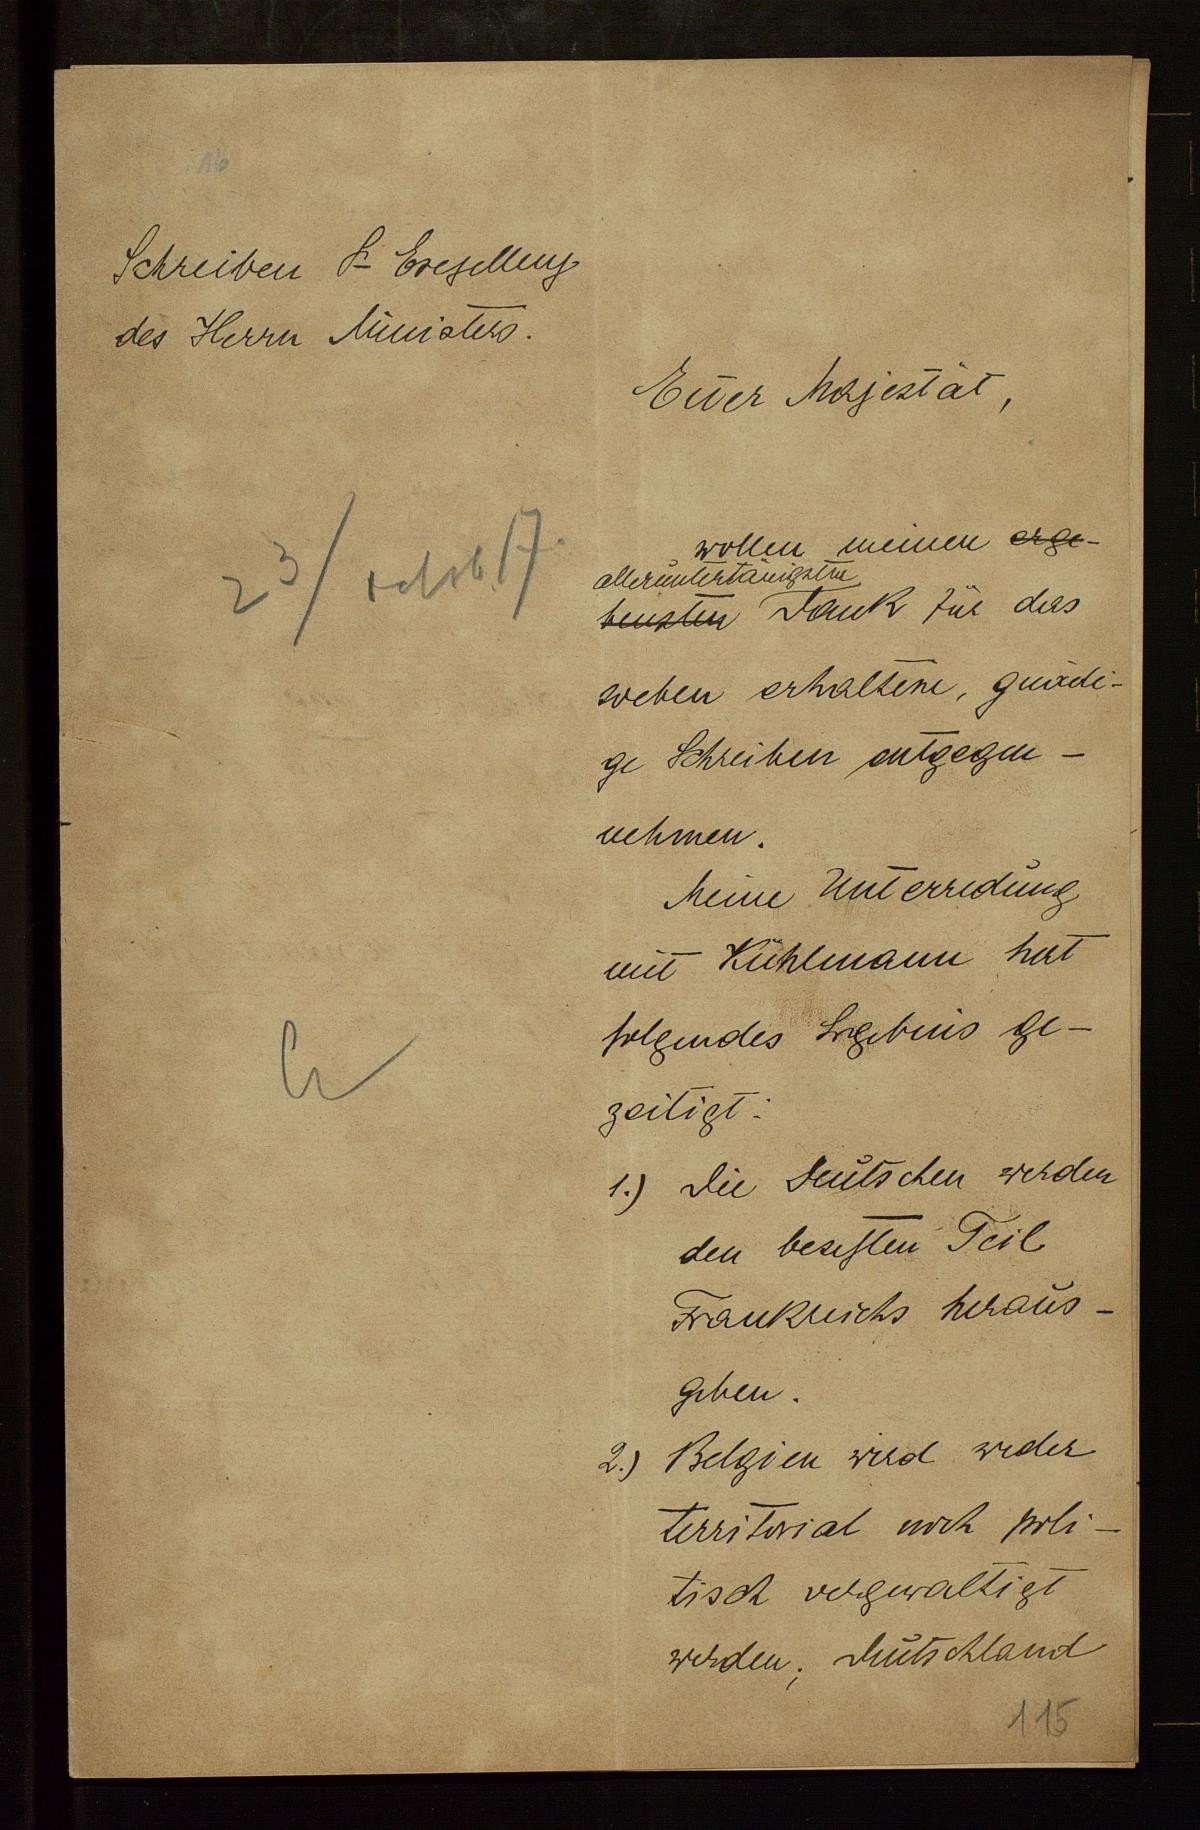 16
Schreiben Sr Exzellenz
des Herrn Ministers.
Euer Majestät,
23/ 17.
wollen meinen erge-
alleruntertänigsten
bensten Dank für das
soeben erhaltene, gnädi-
ge Schreiben entgegen-
nehmen.
Meine Unterredung
mit Kühlmann hat
folgendes Ergebnis ge-
zeitigt:
1.) Die Deutschen werden
den besetzten Teil
Frankreichs heraus-
geben.
2.) Belgien wird weder
territorial noch poli-
tisch vergewaltigt
werden; Deutschland
115